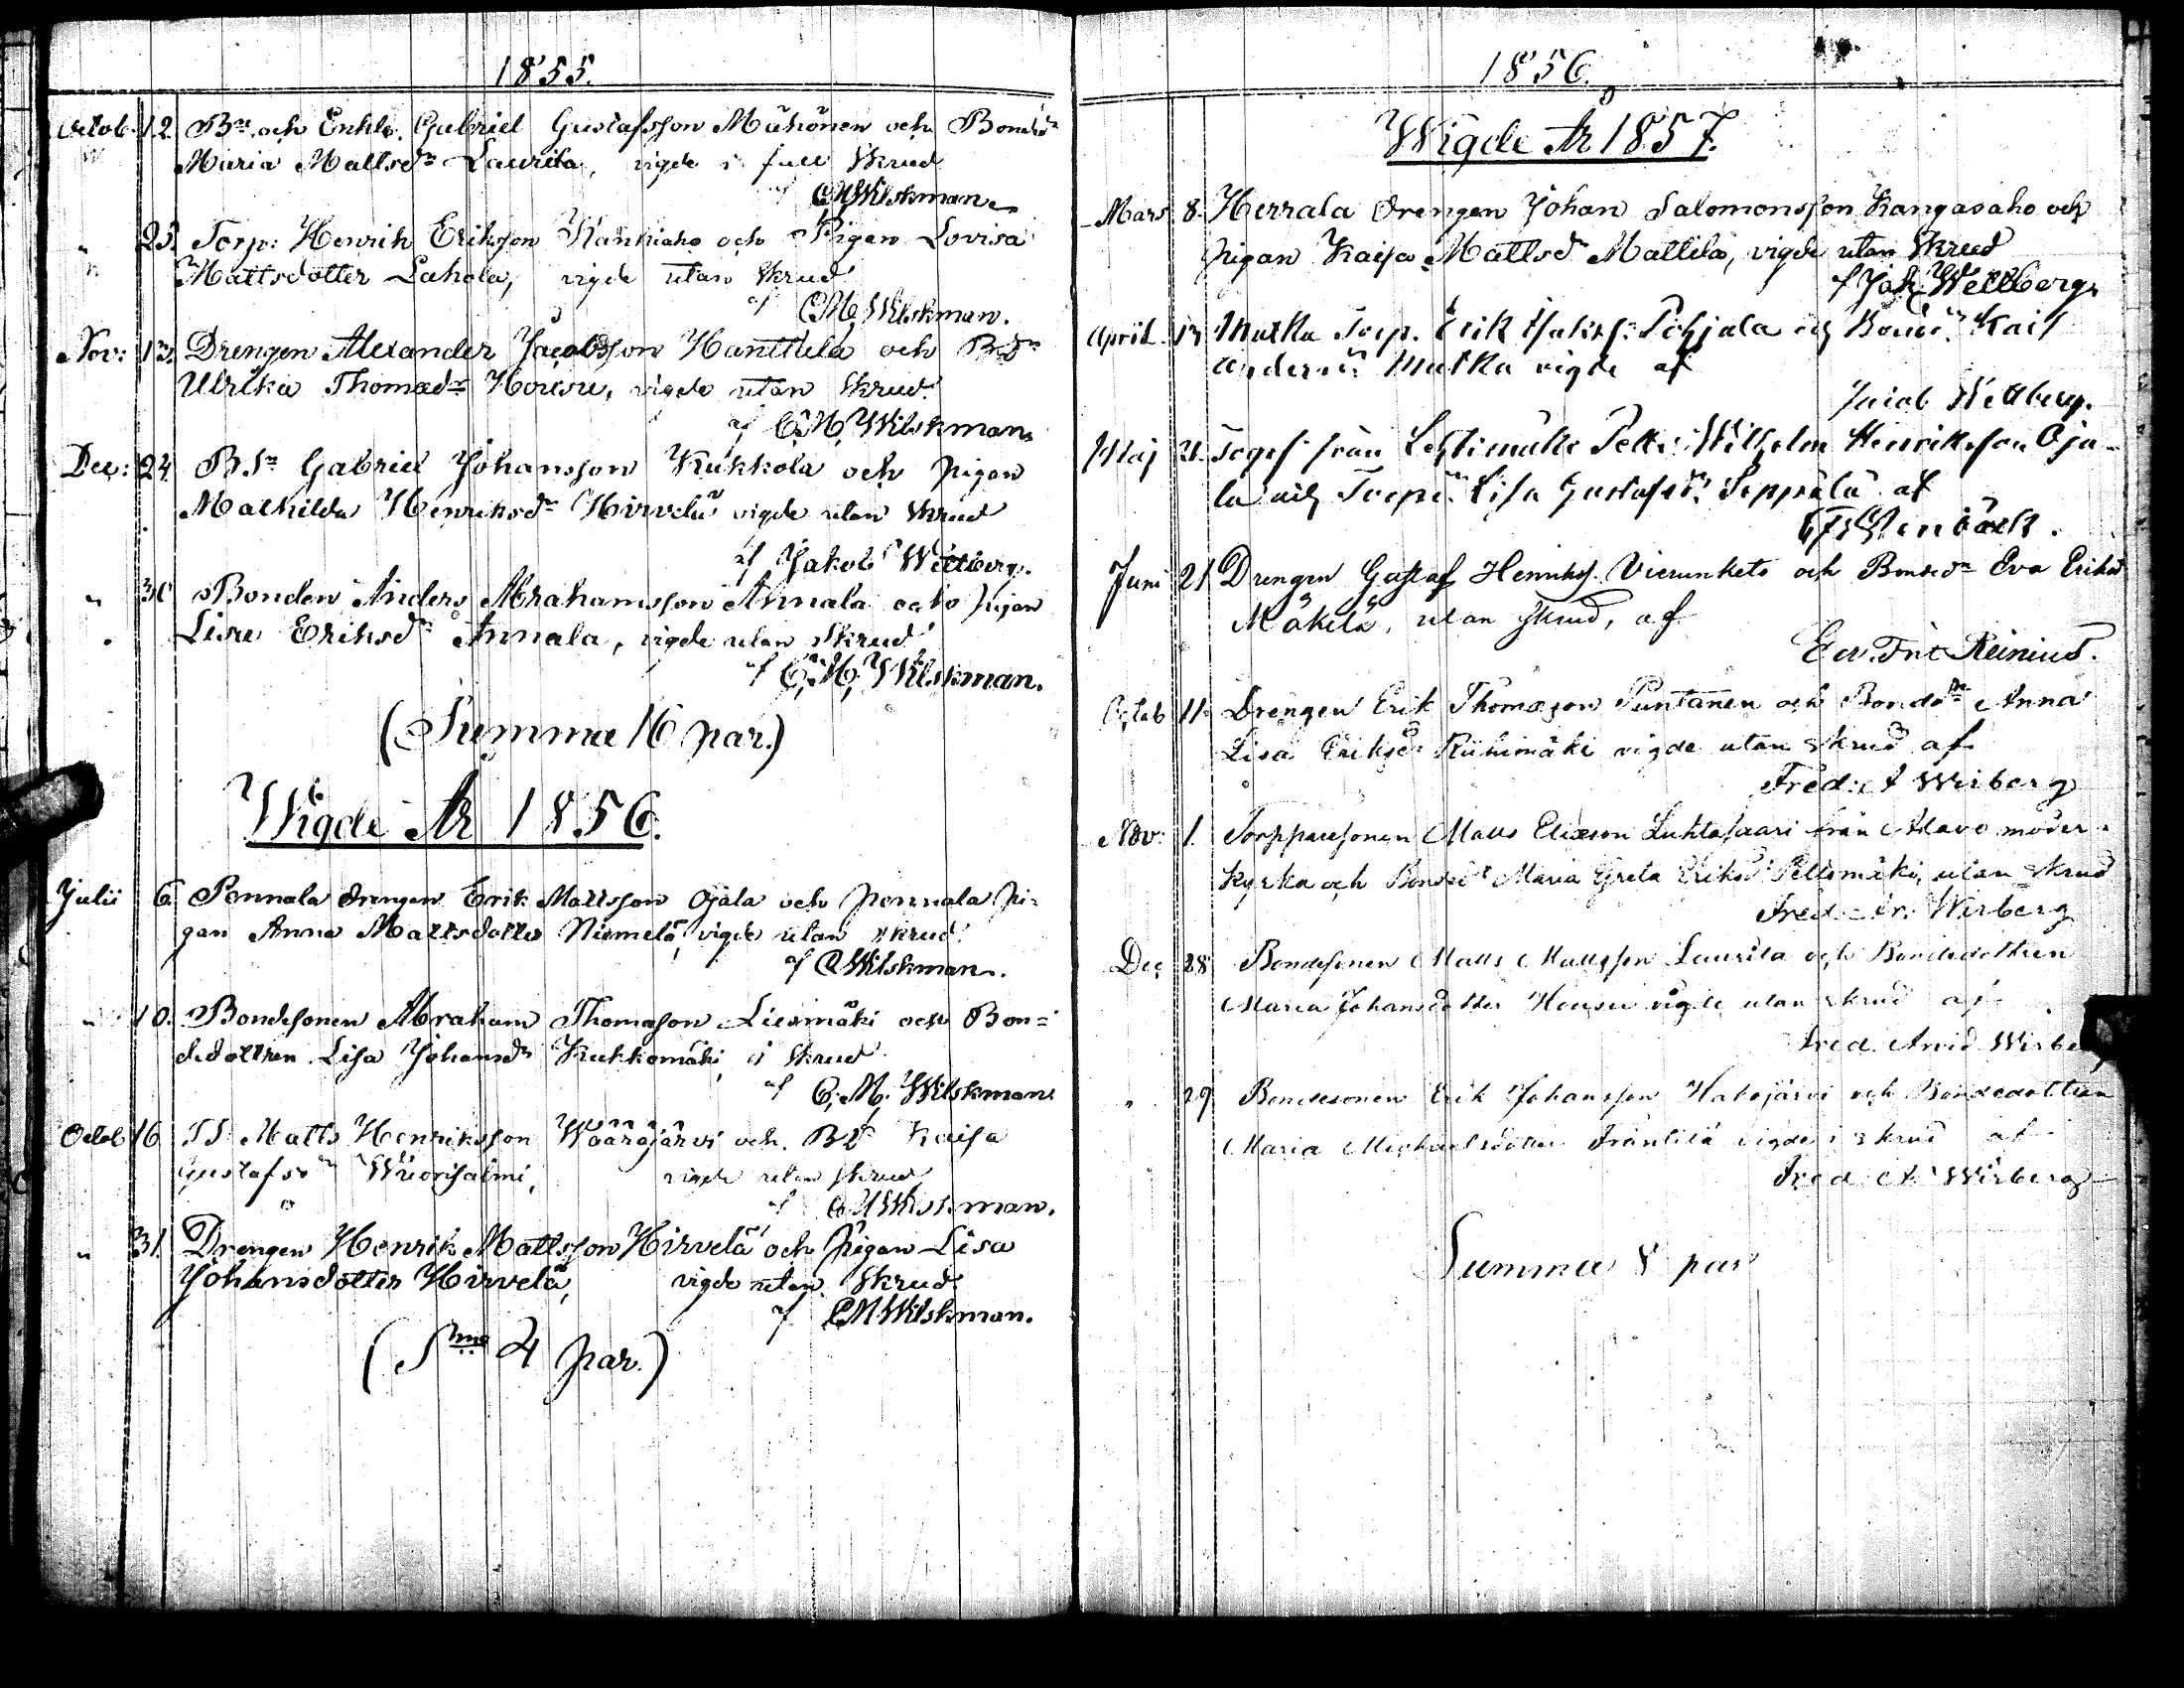 1855.
Octob. 12. Bn. och Enkl. Gabriel Gustafsson Mähönen och Bondedr
Maria Mattsdr Laurila, vigde i full Skrud
af C M Wilskman
" 25. Torp: Henrik Eriksson Kankiaho och Pigan Lovisa
Mattsdotter Lahola, vigde utan Skrud
af C M, Wilskman.
Nov: 13. Drengen Alexander Jacobsson Hanttula och Bdr
Ulrika Thomædr Housu, vigde utan Skrud.
af C, M, Wilskman
Dec: 24. B.Sn Gabriel Johansson Kukkola och pigan
Mathilda Henriksdr Hirvelä vigde utan Skrud
af Jakob Wettberg.
" 30 Bonden Anders Abrahamsson Annala och pigan
Lisu Eriksdr Annala, vigde utan Skrud
af C, M, Wilskman.
(Summa 16 par.)
Wigde År 1856.
Julii 6 Pennala drengen Erik Mattsson Ojala och Pennala pi-
gan Anna Mattsdotter Niemelä, vigde utan skrud.
af C Wilskman.
" 10. Bondesonen Abraham Thomasson Liesmäki och Bon-
dedottren Lisa Johansdr Kukkomäki, i Skrud
af C, M. Wilskman
Octob 16 TS. Matts Henriksson Wääräjärvi och Bdr Kaisa
Gustafsdr Wuorisalmi, vigde utan skrud
af C M Wilskman.
" 31. Drengen Henrik Mattsson Hirvelä och Pigan Lisa
Johansdotter Hirvelä, vigde utan Skrud
af C M Wilskman.
(Sma 4 par.)
1856.
Wigde År 1857.
Mars 8. Herrala drengen Johan Salomonsson Kangasaho och
pigan Kaisa Mattsdr Mattila, vigde utan Skrud
af Jak. Wettberg.
April 13 Mutka Torp. Erik Jakss: Pohjala och Bonddr Kais
Andersdr Mutka vigde af
Jacob Wettberg.
Maj 21. från Lehtimäki Wilhelm Henriksson Oja-
la och Torpdr Lisa Gustafsdr Seppälä af
Stenbäck.
Juni 21 Drengen Gustaf Henrikss. Vierunketo och Bondedr Eva Eriksd
Mäkelä, utan skrud, af
Ew. Fnt Reinius.
Octob 11. Drengen Erik Thomasson Puntanen och Bondedr Anna
Lisa Eriksdr Riihimäki vigde utan skrud af
Fred: A Wirberg
Nov: 1. Torpparesonen Matts Eliæson Luhtasaari från Alavo moder-
kyrka och Bondedr Maria Greta Eriksd Peltomäki, utan skrud
Fred: Ar. Wirberg
Dec 28 Bondesonen Matts Mattsson Laurila och Bondedottren
Maria Johansdotter Housu vigde utan skrud af
Fred. Arvid Wirbe
" 29 Bondesonen Erik Johansson Hakojärvi och Bondedottren
Maria Michaelsdotter Fräntilä vigde i skrud af
Fred. A. Wirberg
Summa 8 par